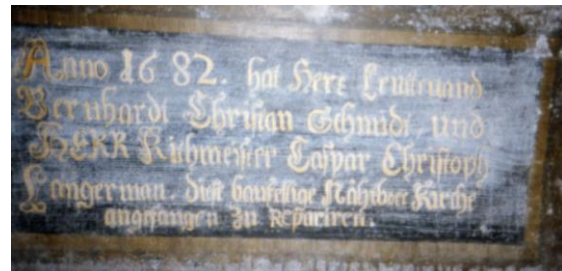 Anno 1682. hat Herr Leutenand
Bernhardt Christian Schmidt, und
HERR Rittmeister Caspar Christoph
Langerman. diese baufellige Kirche
angefangen zu Repariren.